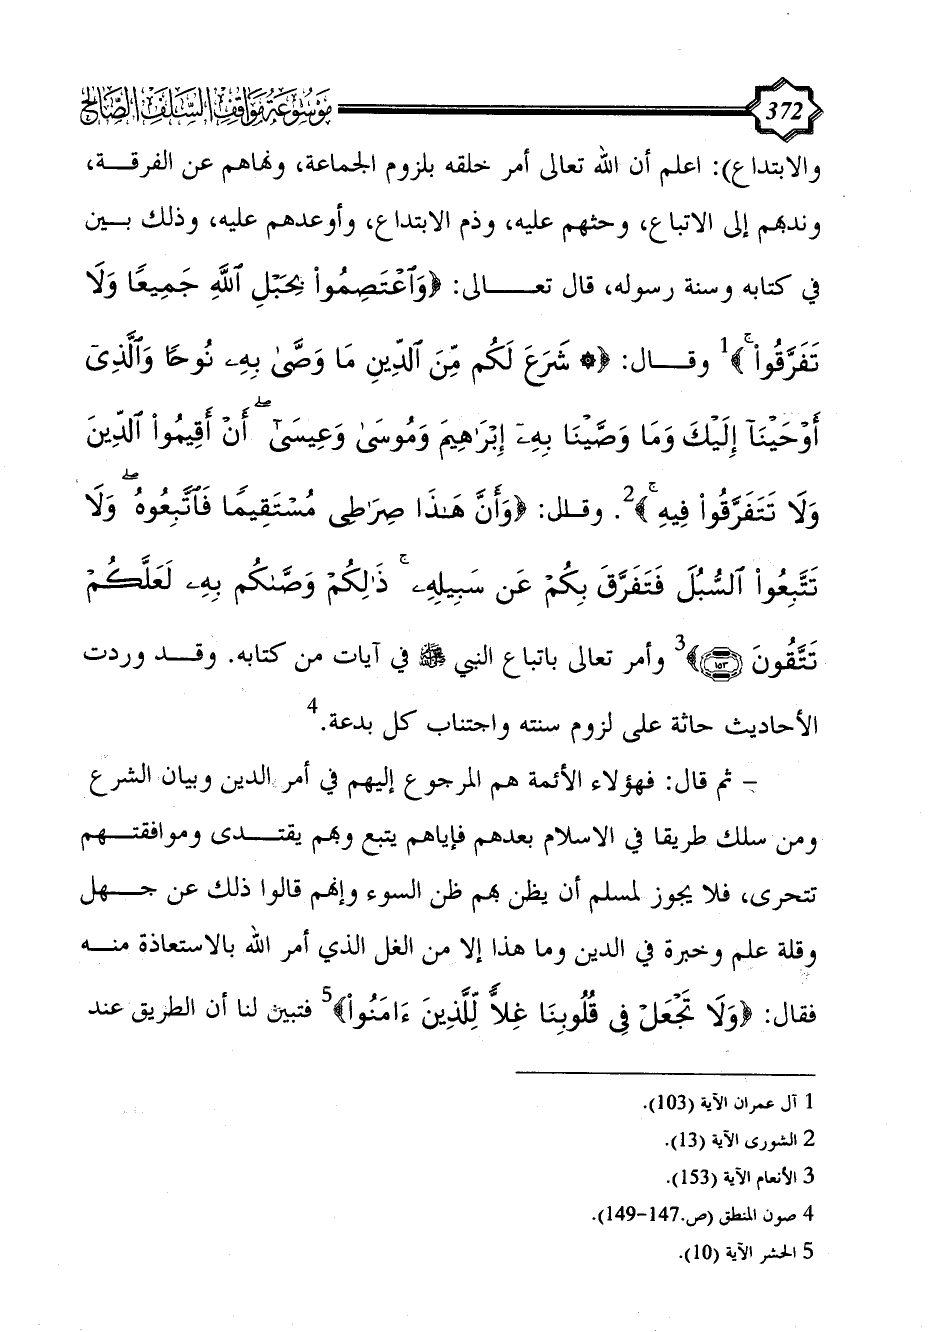 372 موسوعة مواقف السلف الصالح
والابتداع): اعلم أن الله تعالى أمر خلقه بلزوم الجماعة، ونهاهم عن الفرقـــة،
وندبهم إلى الاتباع، وحثهم عليه، وذم الابتداع، وأوعدهم عليه، وذلك بـــين
في كتابه وسنة رسوله، قال تعـــــالى: ﴿وَٱعۡتَصِمُواْ بِحَبۡلِ ٱللَّهِ جَمِيعٗا وَلَا
تَفَرَّقُواْۚ﴾1 وقـــال: ﴿۞ شَرَعَ لَكُم مِّنَ ٱلدِّينِ مَا وَصَّىٰ بِهِۦ نُوحٗا وَٱلَّذِيٓ
أَوۡحَيۡنَآ إِلَيۡكَ وَمَا وَصَّيۡنَا بِهِۦٓ إِبۡرَٰهِيمَ وَمُوسَىٰ وَعِيسَىٰٓۖ أَنۡ أَقِيمُواْ ٱلدِّينَ
وَلَا تَتَفَرَّقُواْ فِيهِۚ﴾2. وقـال: ﴿وَأَنَّ هَٰذَا صِرَٰطِي مُسۡتَقِيمٗا فَٱتَّبِعُوهُۖ وَلَا
تَتَّبِعُواْ ٱلسُّبُلَ فَتَفَرَّقَ بِكُمۡ عَن سَبِيلِهِۦۚ ذَٰلِكُمۡ وَصَّىٰكُم بِهِۦ لَعَلَّكُمۡ
تَتَّقُونَ ١٥٣﴾3 وأمر تعالى باتباع النبي ﷺ في آيات من كتابه. وقـــد وردت
الأحاديث حاثة على لزوم سنته واجتناب كل بدعة.4
– ثم قال: فهؤلاء الأئمة هم المرجوع إليهم في أمر الدين وبيان الشرع
ومن سلك طريقا في الاسلام بعدهم فإياهم يتبع وبهم يقتـــدى وموافقتـــهم
تتحرى، فلا يجوز لمسلم أن يظن بهم ظن السوء وإنهم قالوا ذلك عن جـــهل
وقلة علم وخبرة في الدين وما هذا إلا من الغل الذي أمر الله بالاستعاذة منـــه
فقال: ﴿وَلَا تَجۡعَلۡ فِي قُلُوبِنَا غِلّٗا لِّلَّذِينَ ءَامَنُواْ﴾5 فتبين لنا أن الطريق عند
1 آل عمران الآية (103).
2 الشورى الآية (13).
3 الأنعام الآية (153).
4 صون المنطق (ص.147-149).
5 الحشر الآية (10).